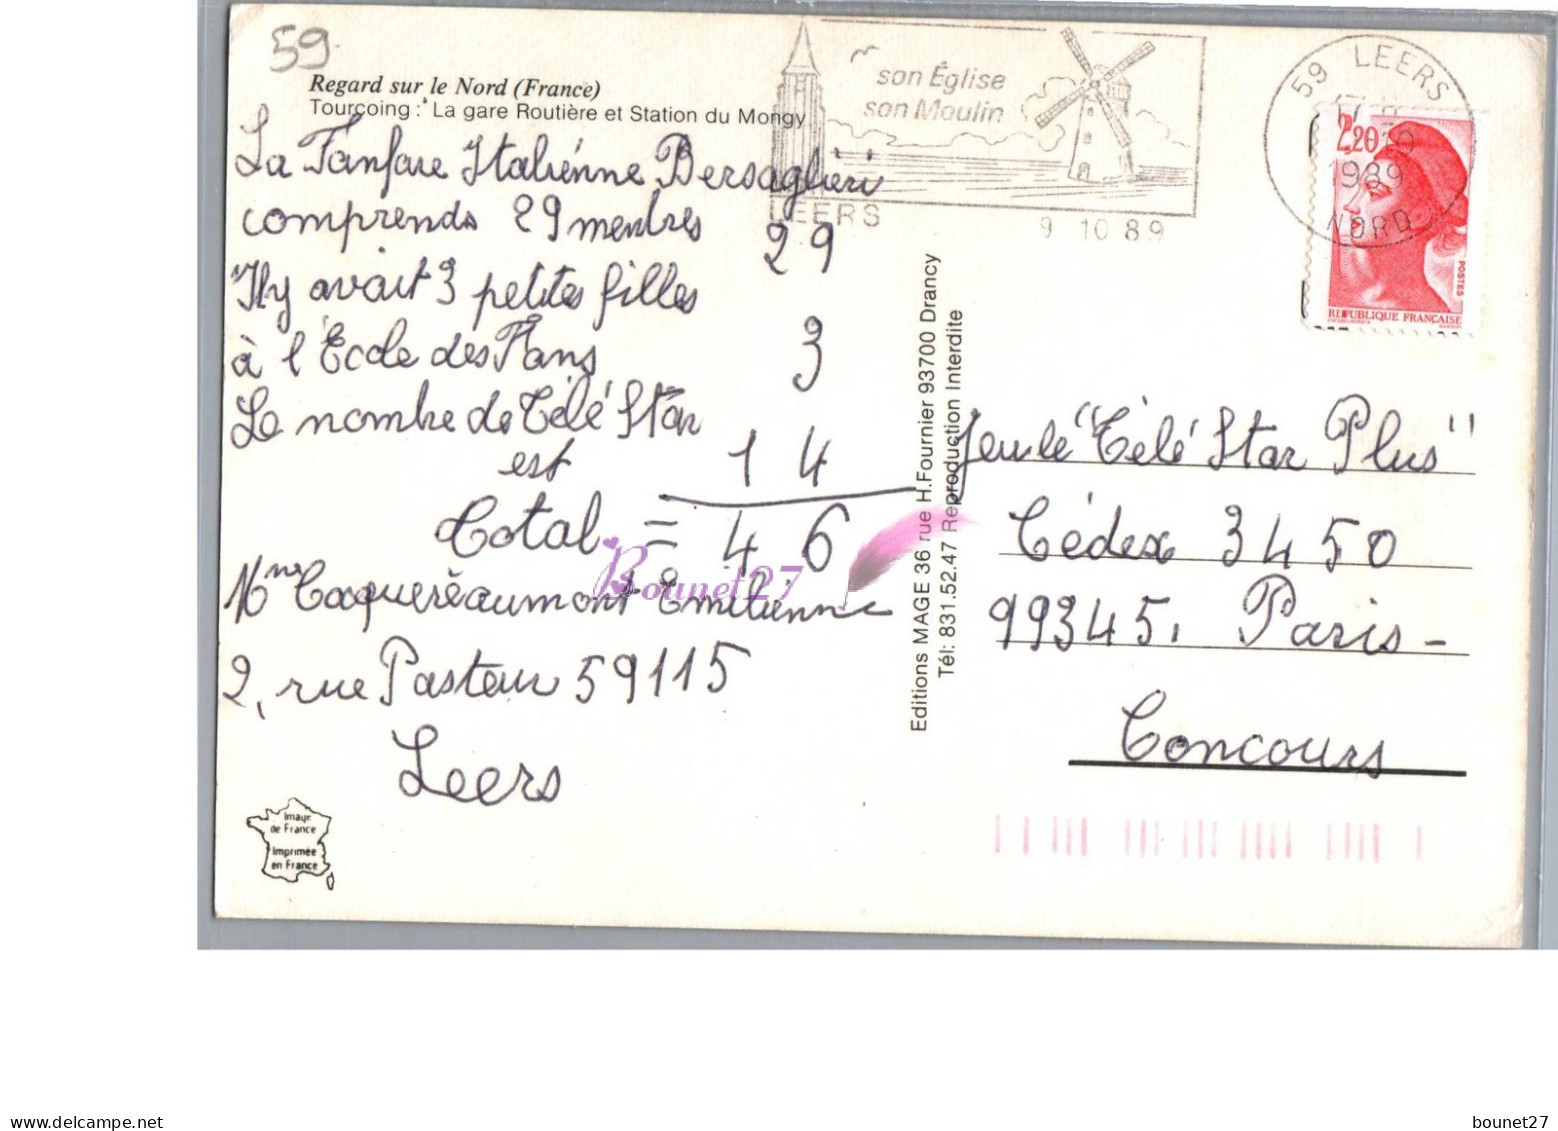 59
Regard sur le Nord (France)
Tourcoing : La gare Routière et Station du Mongy
La Fanfare Italiénne Bersaglièri
comprends 29 membres
29
Il y avait 3 petites filles
à l'École des Fans
3
Le nombre de Télé Star
est
14
Total = 46
Mme Cocquerèaumont Emilienne
2, rue Pasteur 59115
Leers
Image
de France
Imprimée
en France
Editions MAGE 36 rue H.Fournier 93700 Drancy
Tél: 831.52.47 Reproduction Interdite
son Église
son Moulin
LEERS
9 10 89
59 LEERS
1989
NORD
2,20
POSTES
REPUBLIQUE FRANÇAISE
Jeu le "Télé Star Plus"
Cédex 3450
99345. Paris -
Concours
Bounet27
delcampe.net
bounet27